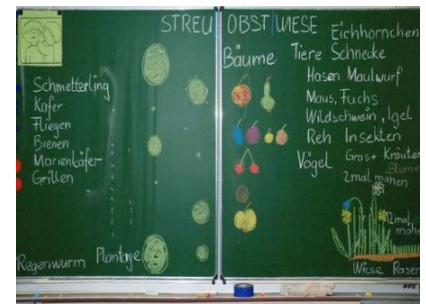 STREU OBST WIESE
Schmetterling
Käfer
Fliegen
Bienen
Marienkäfer
Grillen
Regenwurm Plantage
Bäume
Tiere Schnecke
Eichhörnchen
Hasen Maulwurf
Maus, Fuchs
Wildschwein, Igel
Reh Insekten
Vögel
Gras + Kräuter
Blumen
2mal mähen
12mal
mähen
Wiese Rasen